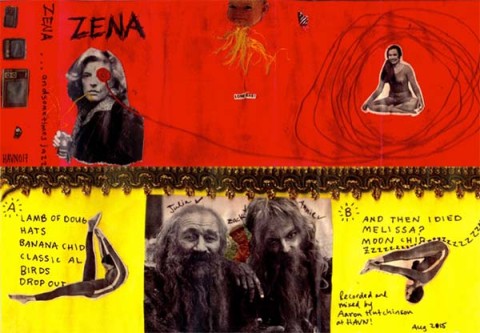 ZENA
ZENA ...andsometimesjazz
HAVN014
A
LAMB OF DOUG
HATS
BANANA CHID
CLASSIC AL
BIRDS
DROP OUT
Julia
Zack
B
AND THEN I DIED
MELISSA?
MOON CHID
Recorded and
mixed by
Aaron Hutchinson
at HAVN!
Aug 2015